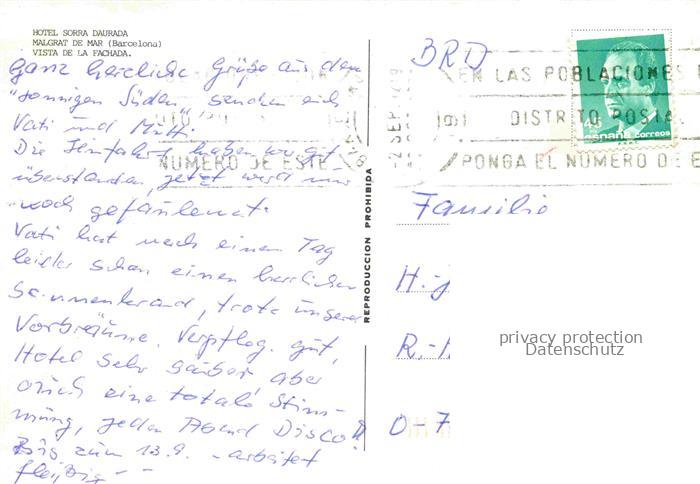 HOTEL SORRA DAURADA
MALGRAT DE MAR (Barcelona)
VISTA DE LA FACHADA.
Ganz herzliche Grüße aus dem
"sonnigen Süden" senden euch
Vati und Mutti.
Die Hinfahrt haben wir gut
überstanden, jetzt wird nur
noch gefaulenzt.
Vati hat nach einem Tag
leider schon einen herrlichen
Sonnenbrand, trotz unserer
Vorbräune. Verpfleg. gut,
Hotel sehr sauber, aber
auch eine totale Stim-
mung, jeden Abend Disco!!
Bis zum 13.9. - arbeitet
fleißig - -
REPRODUCCION PROHIBIDA
BRD
EN LAS POBLACIONES
DISTRITO POSTAL
PONGA EL NUMERO DE
NUMERO DE ESTE
2 SEP
48
españa correos
Familie
H.-j
R.-
O-7
privacy protection
Datenschutz